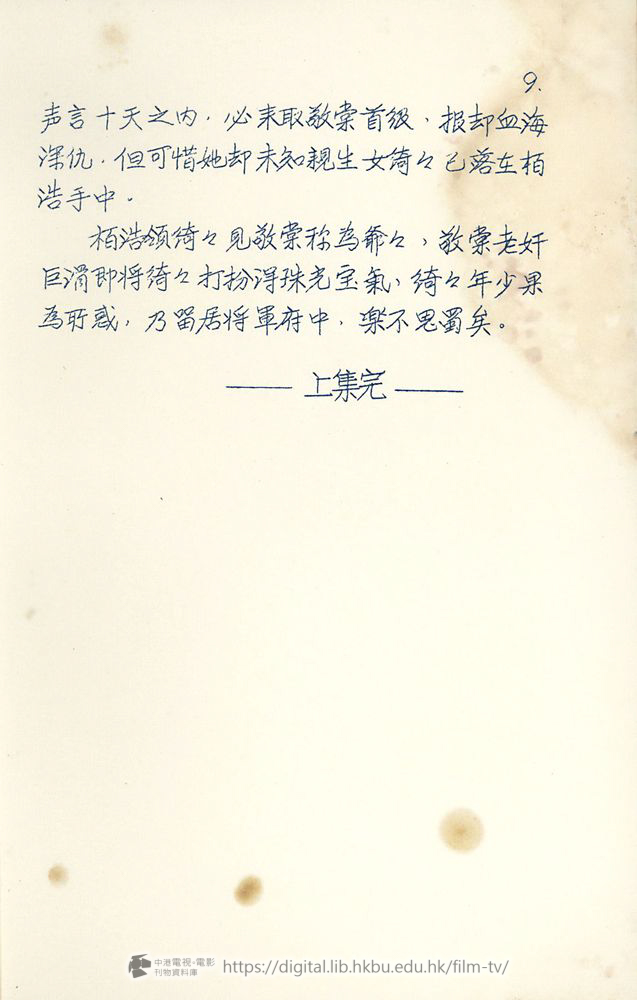 9.
声言十天之内，必来取敬棠首級，报却血海
深仇，但可惜她却未知親生女綺々已落在栢
浩手中。
栢浩领綺々見敬棠称為爺々，敬棠老奸
巨滑即将綺々打扮得珠光宝氣，綺々年少果
為所惑，乃畄居将軍府中，楽不思蜀矣。
—— 上集完 ——
中港電視·電影
刊物資料庫
https://digital.lib.hkbu.edu.hk/film-tv/